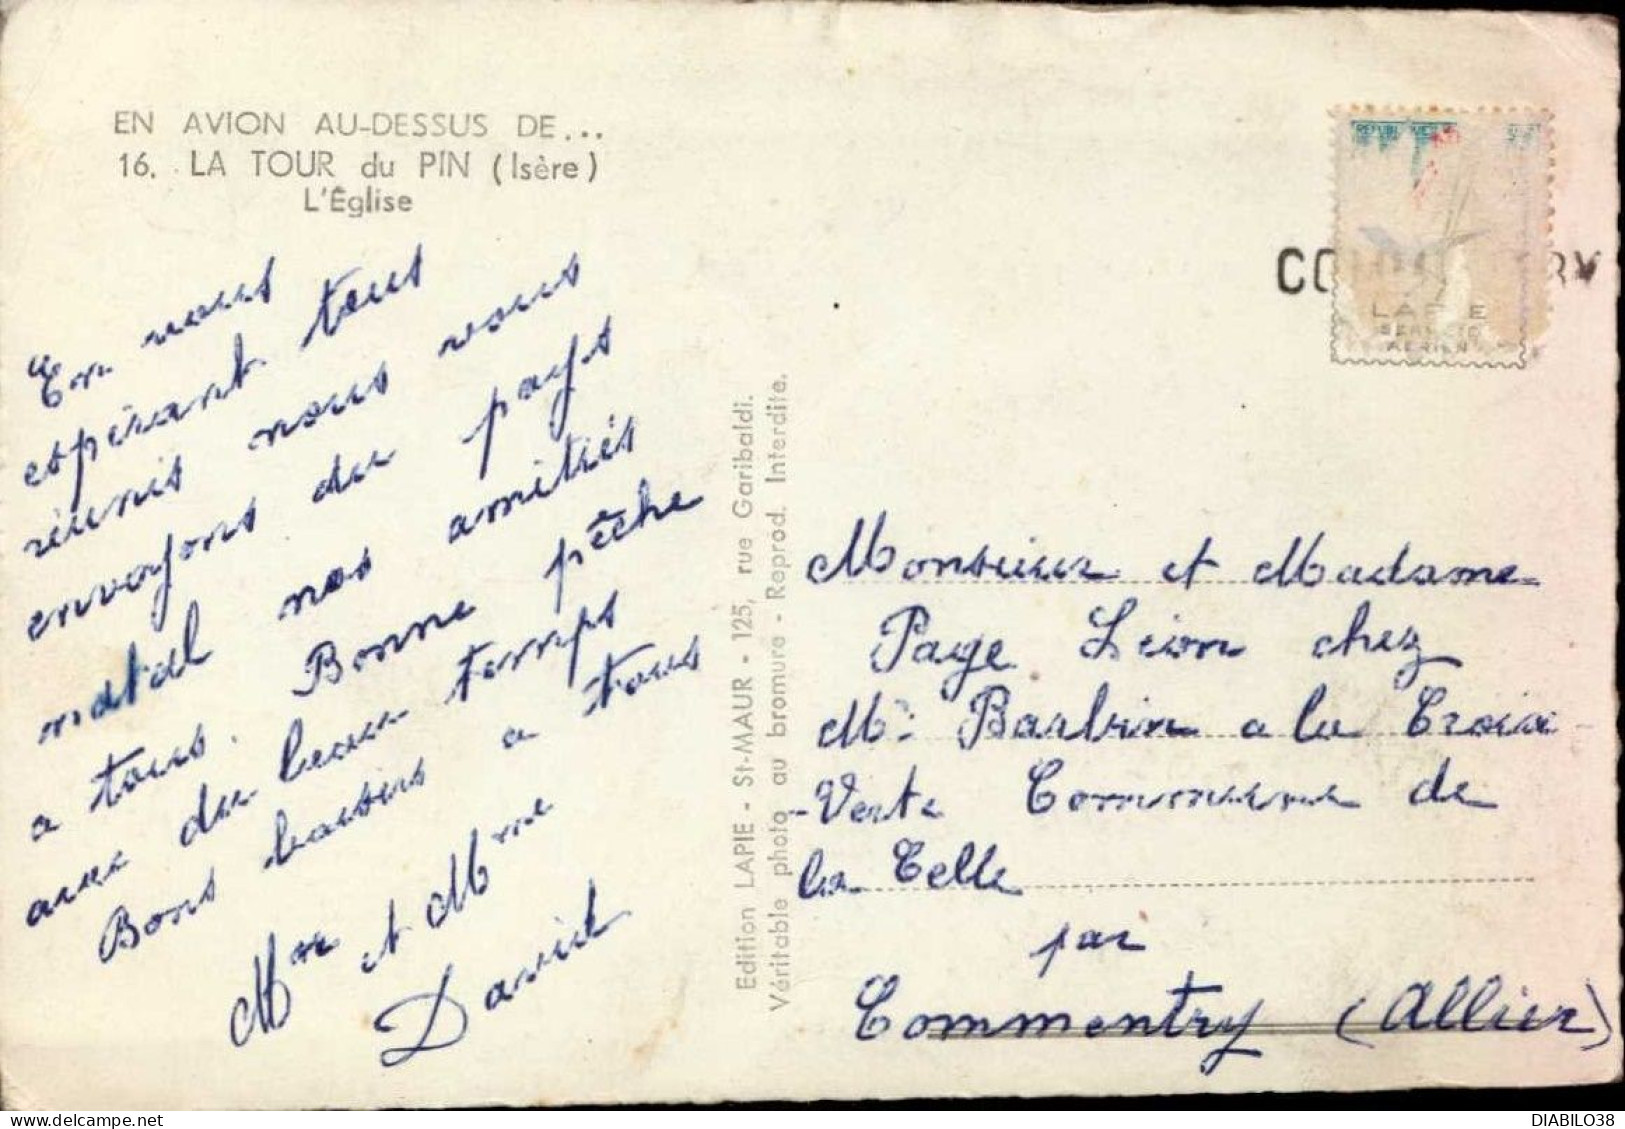 EN AVION AU-DESSUS DE...
16. LA TOUR du PIN (Isère)
L'Église
En vous
espérant tous
réunis nous vous
envoyons du pays
natal nos amitiés
a tous. Bonne pêche
avec du beau temps
Bons baisers a tous
Mr et Mme
David
Edition LAPIE - St-MAUR - 125, rue Garibaldi.
Véritable photo au bromure - Reprod. Interdite.
LAPIE
SERVICE
AÉRIEN
Monsieur et Madame
Page Léon chez
Mr Barbin a la Croix
-Verte Commune de
la Celle
par
Commentry (Allier)
DIABILO38